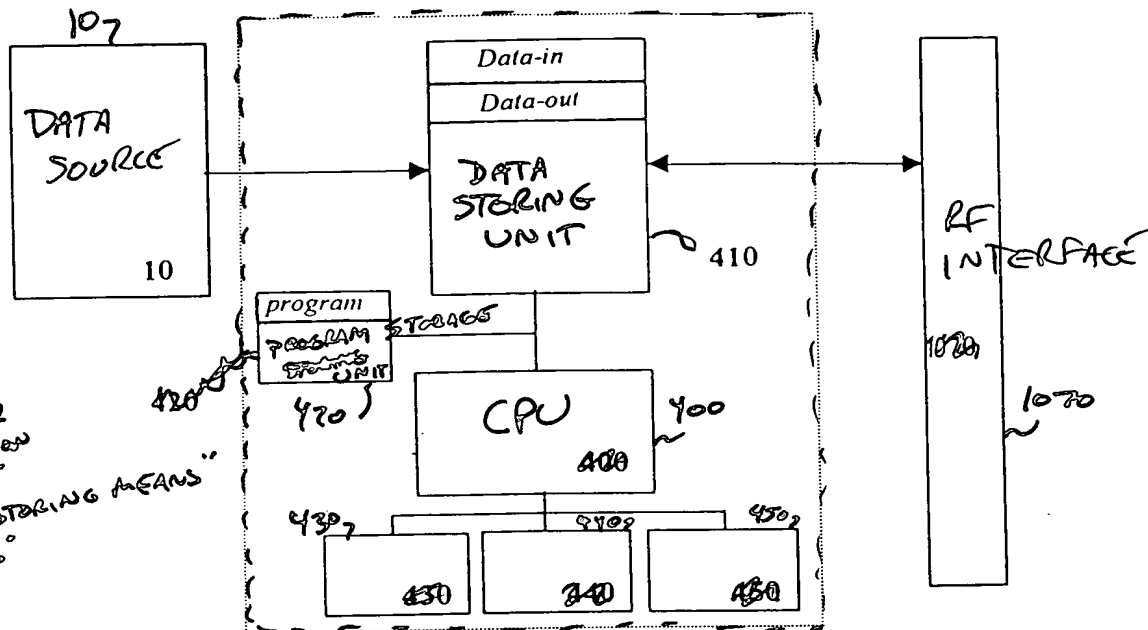 10
DATA
SOURCE
10
Data-in
Data-out
DATA
STORING
UNIT
410
RF
INTERFACE
1020
program
PROGRAM STORAGE
UNIT
420
420
CPU
400
400
STORING MEANS"
430
440
450
430
340
450